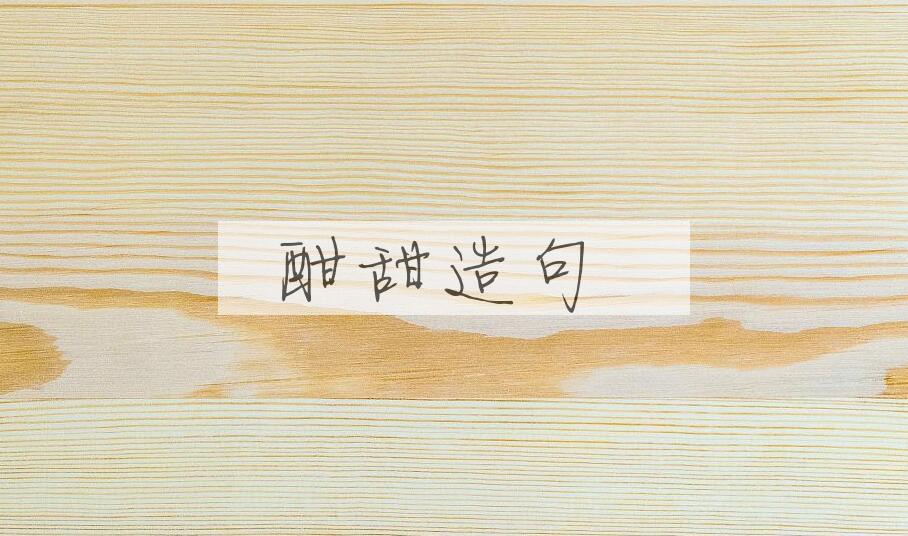 酣甜造句